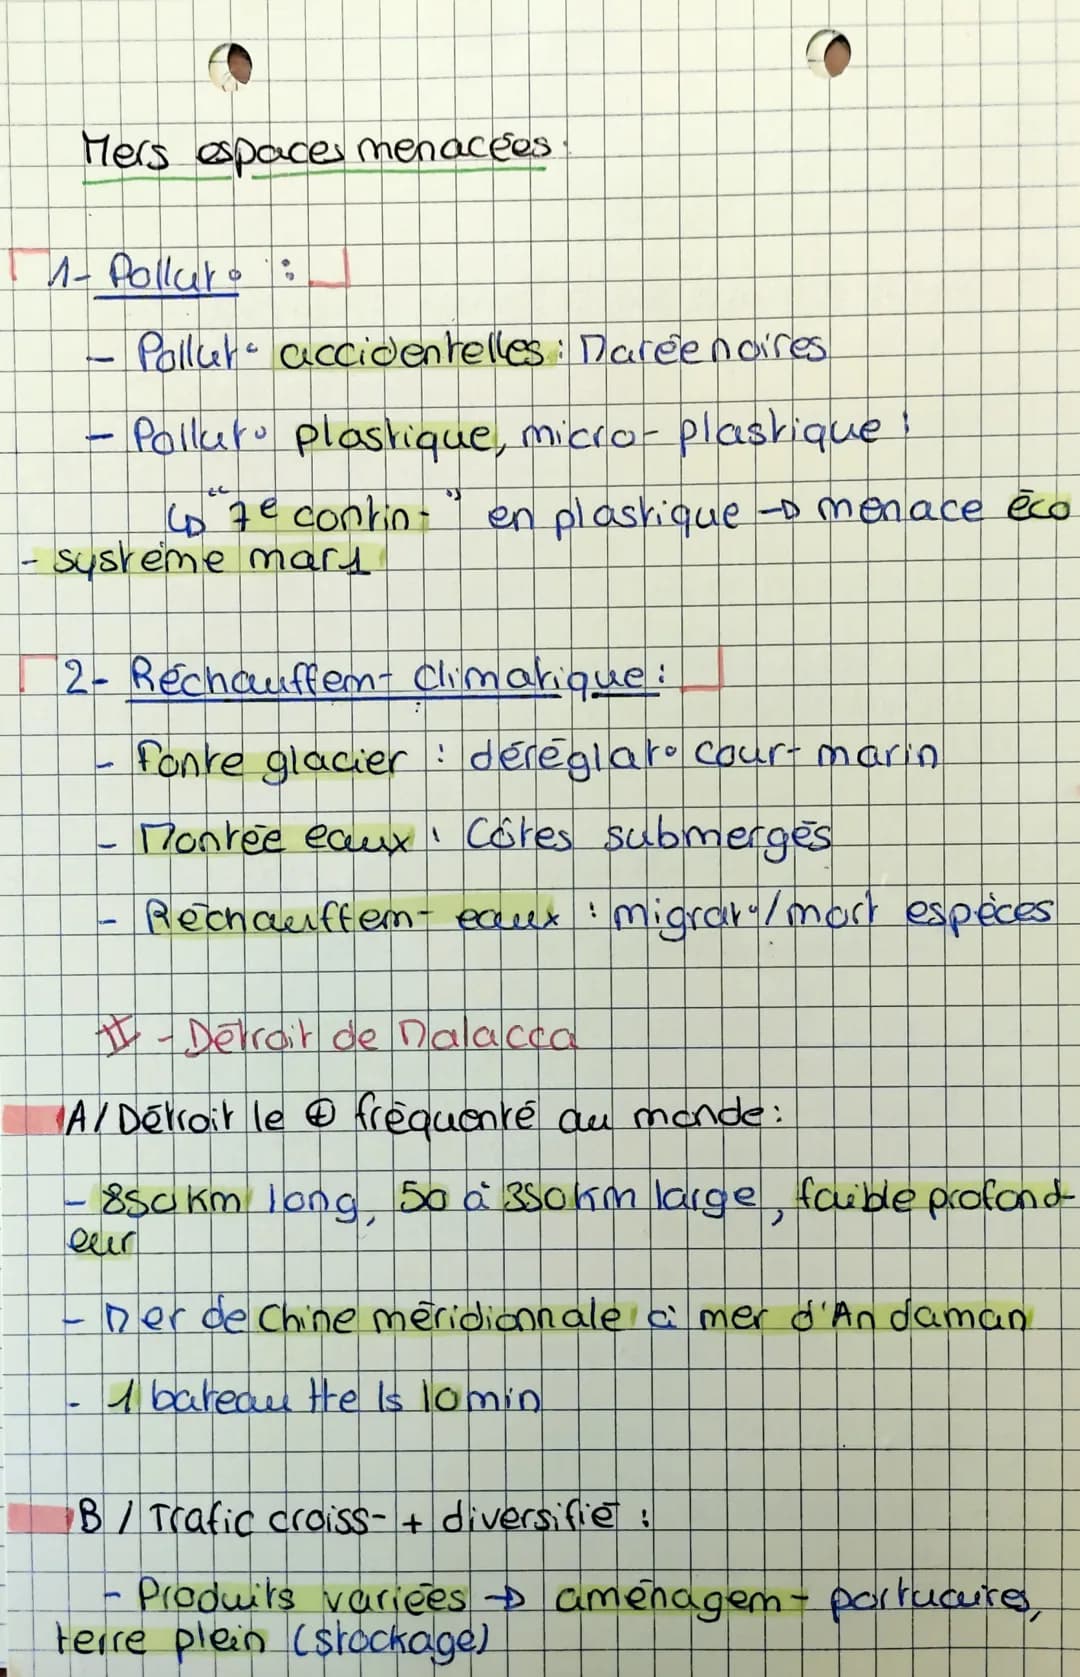 Mers espaces menacées :
1- Pollut° :
- Pollut° accidentelles : Marée noires
- Pollut° plastique, micro-plastique :
↳ "7e contin-" en plastique → menace éco
- système mars
2- Réchauffem- Climatique :
- Fonte glacier : déréglat° cour- marin
- Montée eaux : Côtes submergés
- Réchauffem- eaux : migrat°/mort espèces
II - Détroit de Malacca
A/ Détroit le ⊕ fréquenté au monde :
- 850 km long, 50 à 350 km large, faible profond-
eur
- Mer de Chine méridionnale à mer d'Andaman
- 1 bateau tte ls 10 min
B / Trafic croiss- + diversifié :
- Produits variées → aménagem- portuaires,
terre plein (stockage)